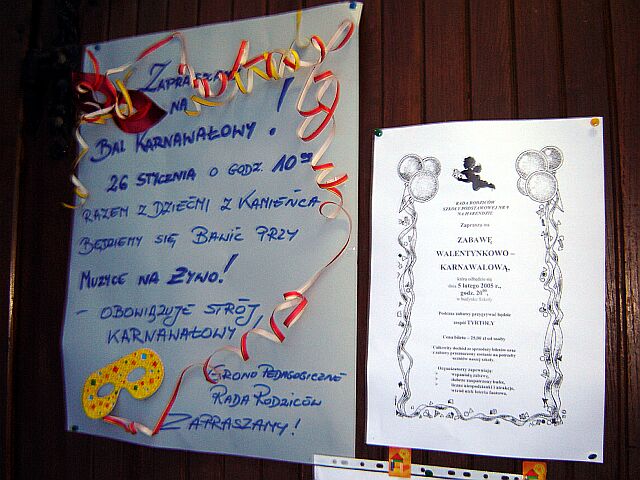 ZAPRASZAMY
NA
BAL KARNAWAŁOWY!
26 STYCZNIA O GODZ. 10⁰⁰
RAZEM Z DZIEĆMI Z KAMIEŃCA
BĘDZIEMY SIĘ BAWIĆ PRZY
MUZYCE NA ŻYWO!
- OBOWIĄZUJE STRÓJ
KARNAWAŁOWY
GRONO PEDAGOGICZNE
RADA RODZICÓW
ZAPRASZAMY!
RADA RODZICÓW
SZKOŁY PODSTAWOWEJ NR 9
NA HARENDZIE
Zaprasza na
ZABAWĘ
WALENTYNKOWO –
KARNAWAŁOWĄ,
która odbędzie się
dnia 5 lutego 2005 r.,
godz. 20⁰⁰,
w budynku Szkoły
Podczas zabawy przygrywać będzie
zespół TYRTOŁY
Cena biletu – 25,00 zł od osoby
Całkowity dochód ze sprzedaży biletów oraz
z zabawy przeznaczony zostanie na potrzeby
uczniów naszej szkoły.
Organizatorzy zapewniają:
wspaniałą zabawę,
dobrze zaopatrzony bufet,
liczne niespodzianki i atrakcje,
wśród nich loteria fantowa.